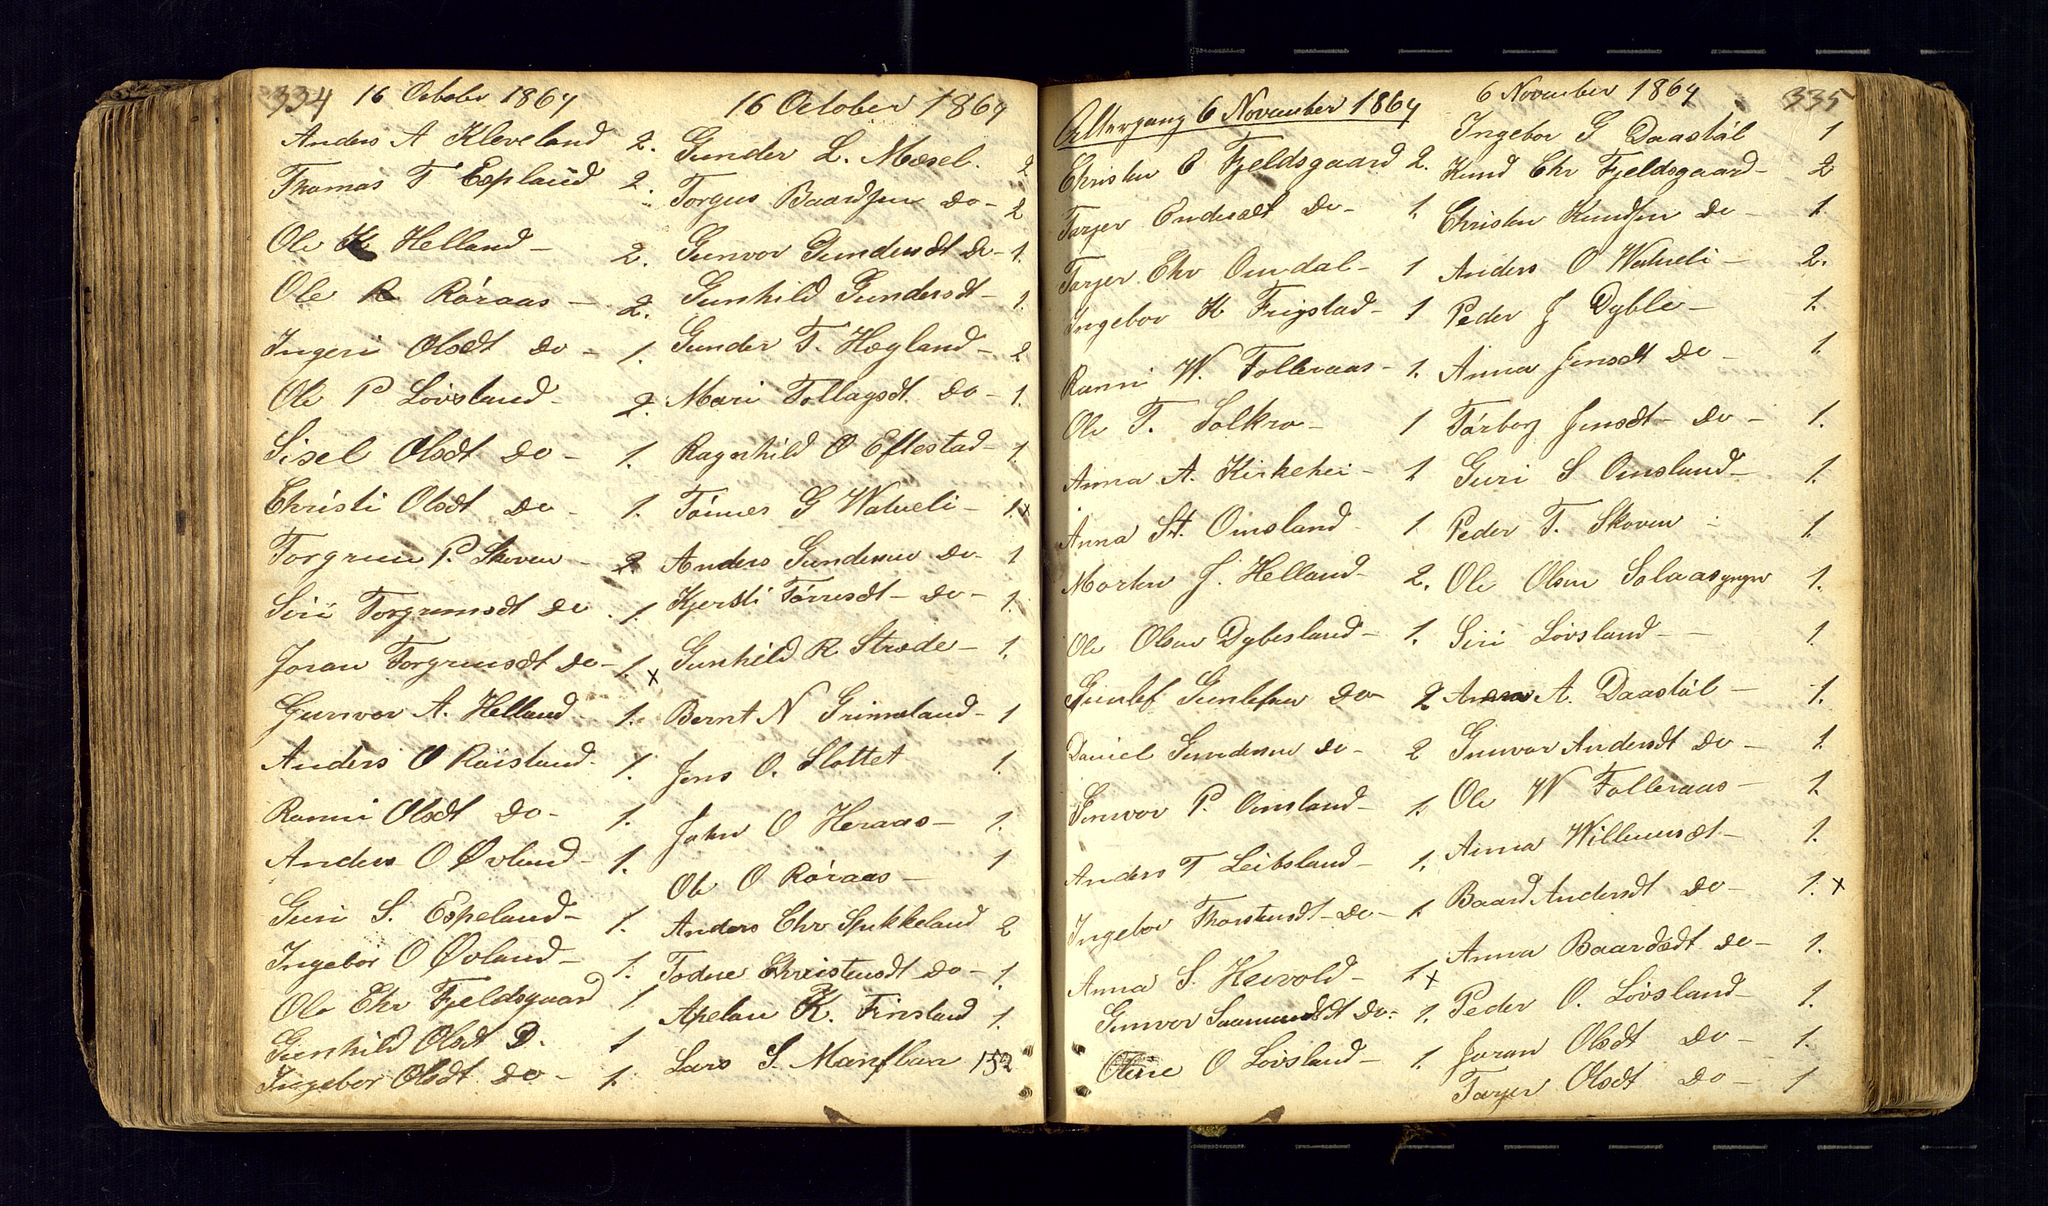 334 16 October 1864
Anders A Kleveland 2.
Thomas T Espeland 2.
Ole K Helland - 2.
Ole R Røraas - 2.
Ingeri Olsdt do - 1.
Ole P Løvsland - 2.
Sisel Olsdt do - 1.
Christi Olsdt do - 1.
Torgrim P. Skoven - 2
Siri Torgrimsdt do 1.
Joran Torgrimsdt do - 1. x
Gunvor A. Helland - 1.
Anders O Røisland - 1.
Ranni Olsdt do - 1.
Anders O Øvland - 1.
Guri S. Espeland - 1.
Ingebor O Øvland - 1.
Ole Chr Fjeldsgaard 1
Gunhild Olsdt D. 1
Ingebor Olsdt do - 1.
16 October 1864
Gunder L. Mæsel. 2
Torgus Baardsen do - 2
Gunvor Gundersdt do - 1.
Gunhild Gundersdt - 1.
Gunder T. Høyland - 2
Mari Tollagsdt. do - 1.
Ragnhild O Eftestad - 1
Tønnes G Watneli - 1. x
Anders Gundersen do - 1
Kjersti Tørresdt - do - 1.
Gunhild R Stræde - 1.
Bernt N Grimsland - 1
Jens O. Slottet 1.
John O Heraas - 1.
Ole O Røraas - 1
Anders Chr Spikkeland 2
Todne Christensdt do - 1.
Apelau K. Finsland 1.
Lars S. Manflaa 152
335
Altergang 6 November 1864
Christen E Fjeldsgaard 2.
Tarjer Endresdt do - 1.
Tarjer Chr Omdal - 1
Ingebor K Frigstad - 1
Ranni W. Folleraas - 1.
Ole T. Solkro - 1
Anna A. Kirkehei - 1
Anna St. Omsland 1
Morten J. Helland - 2.
Ole Olsen Dybesland - 1.
Gunlef Gunlefsen do - 2
Daniel Gundersen do - 2
Gunvor P. Omsland - 1.
Anders T Leibsland - 1.
Ingebor Thorstensdt - do - 1
Anna S. Heivold - 1 x
Gunvor Saamundsdt do - 1.
Oline O Løvsland - 1.
6 November 1864
Ingebor G Daastøl 1
Knud Chr Fjeldsgaard - 2
Christen Knudsen do - 1.
Anders O Watneli - 2.
Peder J Dyble - 1.
Anna Jensdt do - 1.
Tarborg Jensdt - do - 1.
Guri S Omsland - 1.
Peder T. Skoven - 1.
Ole Olsen Solaas yngre 1.
Siri Løvsland - - 1
Anna A. Daastøl - 1.
Gunvor Andersdt do - 1.
Ole W Folleraas - 1
Anna Willumsdt - 1.
Baard Andersdt do - 1. x
Anna Baardsdt do - 1.
Peder O. Løvsland - 1.
Joran Olsdt do - 1.
Tarjer Olsdt do - 1